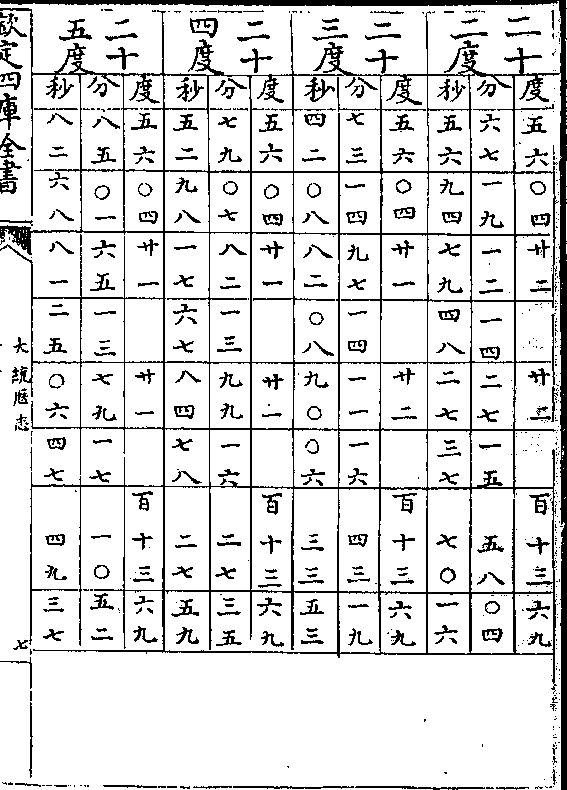 二十二度
度 五六 〇四 廿二 廿二 百十三 六九
分 六七 一九 一二 一四 二七 一五 五八 〇四
秒 五六 九四 七九 四八 二七 三七 七〇 一六
二十三度
度 五六 〇四 廿一 廿二 百十三 六九
分 七三 一四 九七 一四 一一 一六 四三 一九
秒 四二 〇八 八二 〇八 九〇 〇六 三三 五三
二十四度
度 五六 〇四 廿一 廿一 百十三 六九
分 七九 〇七 八二 一三 九九 一六 二七 三五
秒 五二 九八 一七 六七 八四 七八 二七 五九
二十五度
度 五六 〇四 廿一 廿一 百十三 六九
分 八五 〇一 六五 一三 七九 一七 一〇 五二
秒 八二 六八 八一 二五 〇六 四七 四九 三七
欽定四庫全書
大統厯志
七